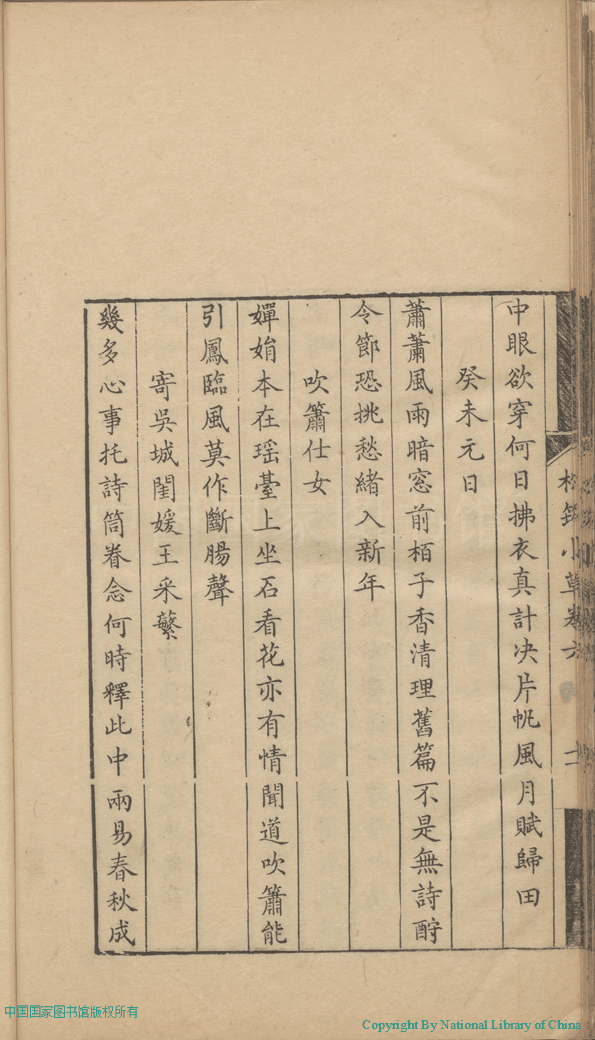 中眼欲穿何日拂衣真計决片帆風月賦歸田
癸未元日
蕭蕭風雨暗窓前栢子香清理舊篇不是無詩酹
令節恐挑愁緒入新年
吹簫仕女
嬋娟本在瑶臺上坐石看花亦有情聞道吹簫能
引鳳臨風莫作斷腸聲
寄吳城閨媛王采蘩
幾多心事托詩筒眷念何時釋此中兩易春秋成
小草卷六
十一
中国国家图书馆版权所有
Copyright By National Library of China